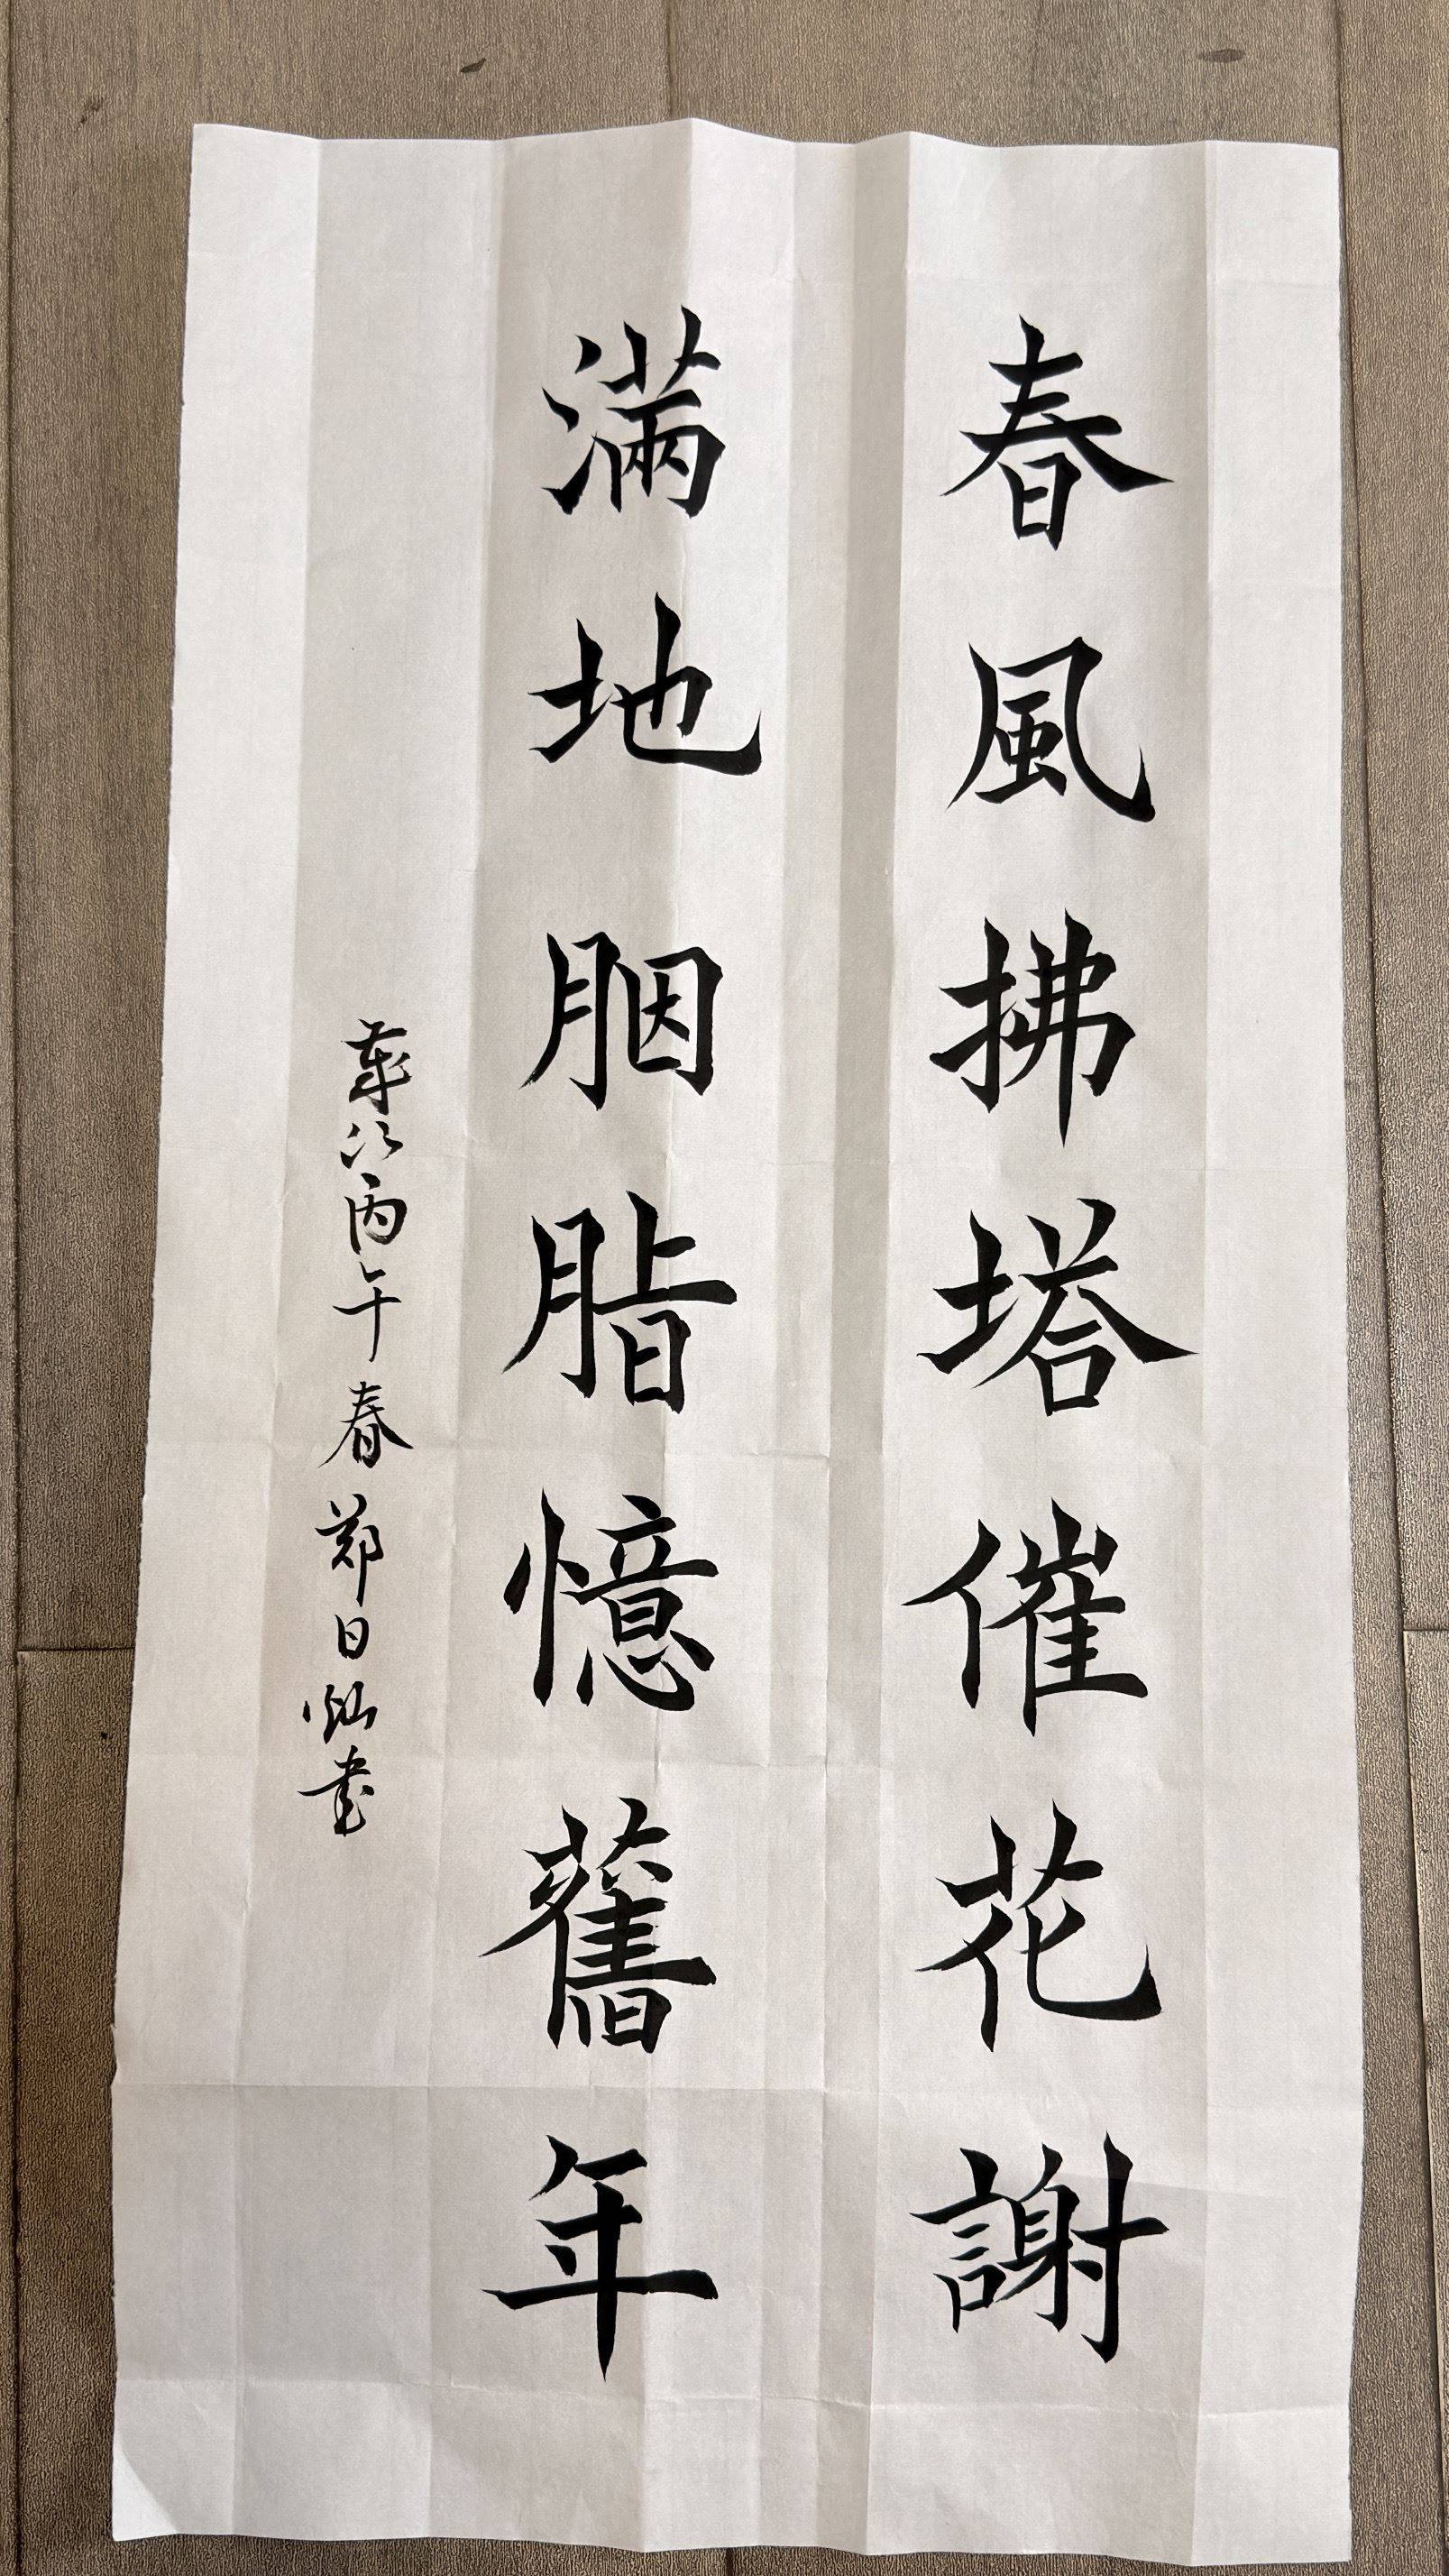 春風拂塔催花謝
滿地胭脂憶舊年
歲次丙午春鄭日灿書